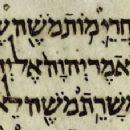 חרי מות משה ע
אמר יהוה אל י
שרת משה לא